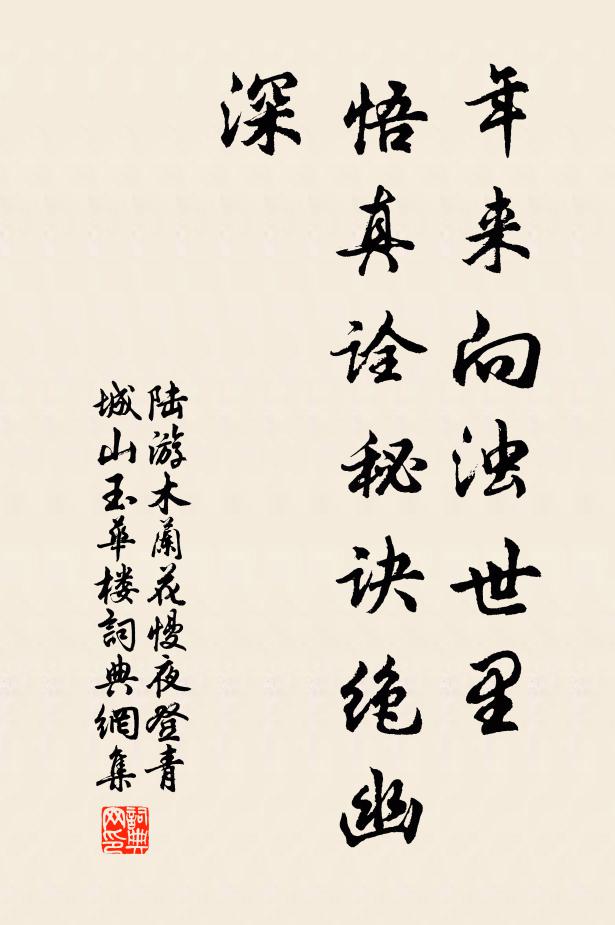 年来向浊世里
悟真诠秘诀绝幽
深
陆游木蘭花慢夜登青
城山玉華楼詞典網集
詞典
网印